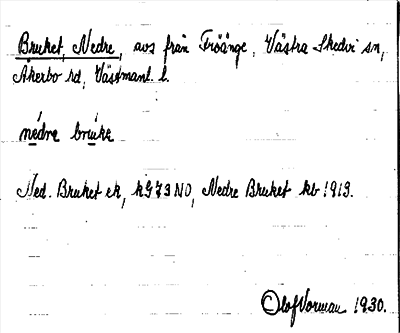 Bruket, Nedre, avs från Fröånge, Västra Skedvi sn,
Åkerbo hd, Västmanl. l.
nédre brúke
Ned. Bruket ek, hG73NO, Nedre Bruket kb 1913.
Olof Vorman 1930.